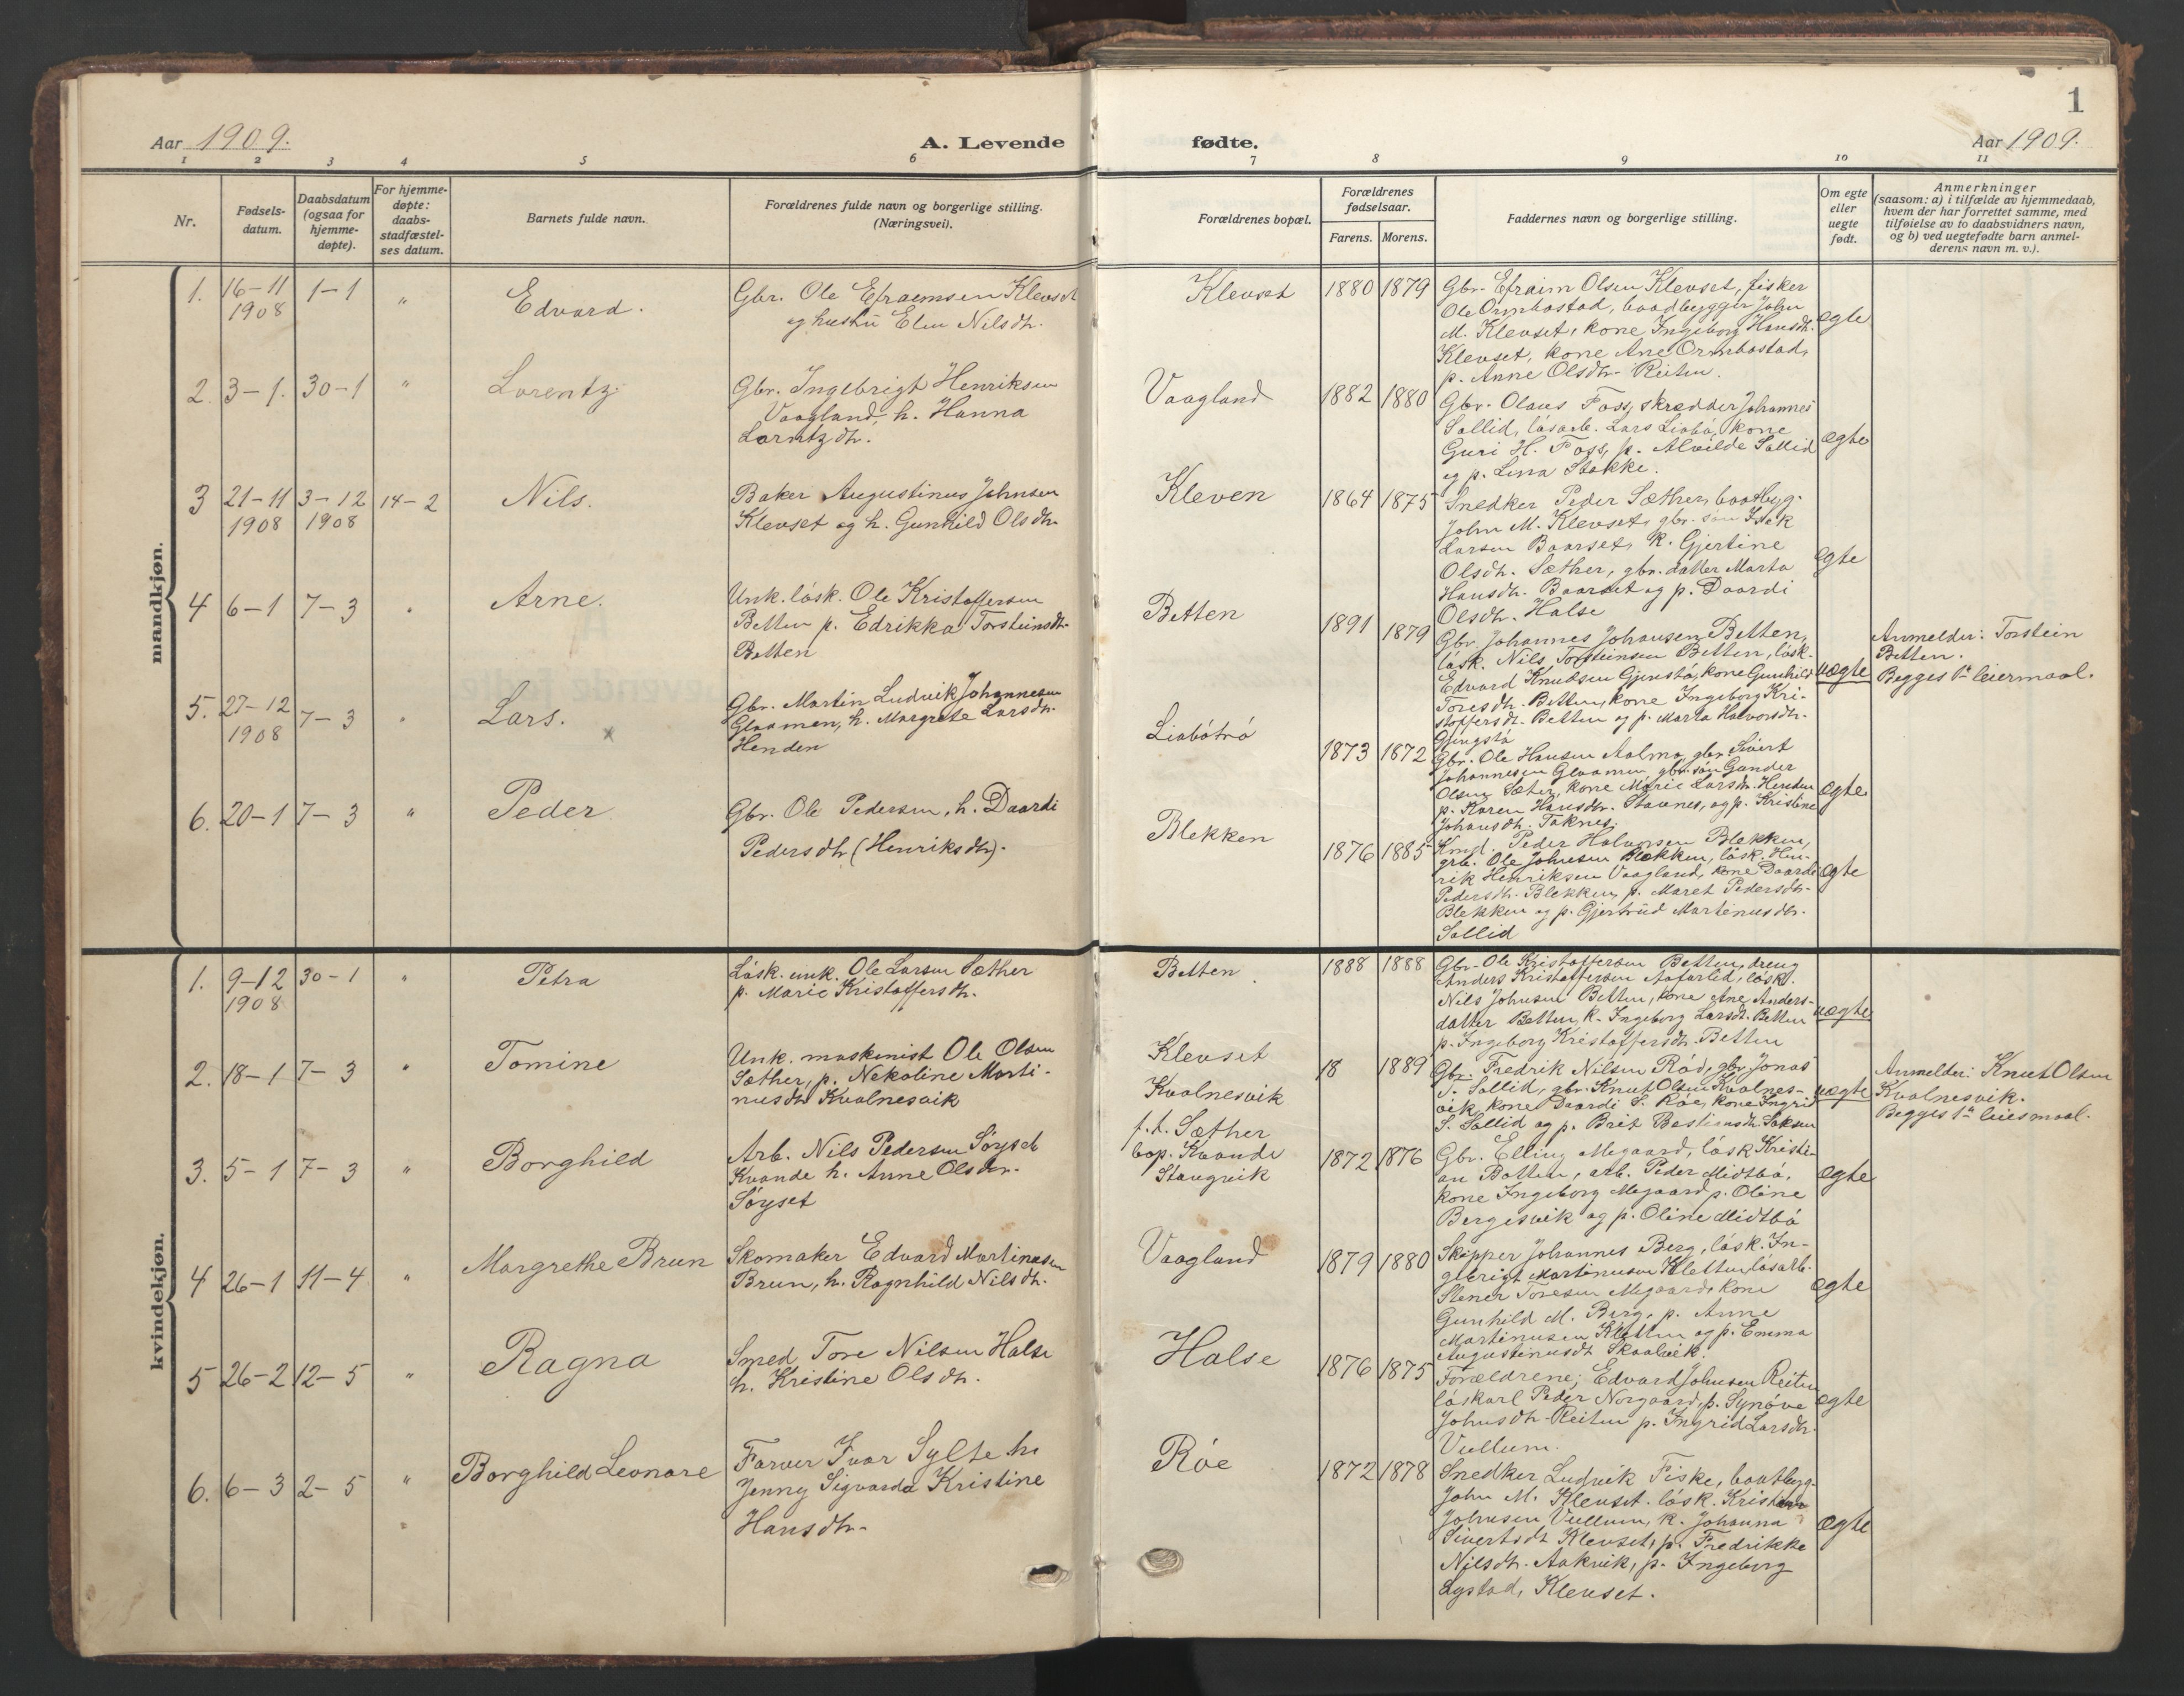 1
Aar 1909.
A. Levende
fødte.
Aar 1909.
1 2 3 4 5 6 7 8 9 10 11
Nr.
Fødsels-
datum.
Daabsdatum
(ogsaa for
hjemme-
døpte).
For hjemme-
døpte:
daabs-
stadfæstel-
ses datum.
Barnets fulde navn.
Forældrenes fulde navn og borgerlige stilling.
(Næringsvei).
Forældrenes bopæl.
Forældrenes
fødselsaar.
Farens. Morens.
Faddernes navn og borgerlige stilling.
Om egte
eller
uegte
født.
Anmerkninger
(saasom: a) i tilfælde av hjemmedaab,
hvem der har forrettet samme, med
tilføielse av to daabsvidners navn,
og b) ved uegtefødte barn anmel-
derens navn m. v.).
mandkjøn.
1. 16-11 1-1 "
1908
Edvard.
Gbr. Ole Efraemsen Klevset
og hustru Elen Nilsdtr.
Klevset 1880 1879
Gbr. Efraim Olsen Klevset, fisker
Ole Ormbostad, baadbygger John
M. Klevset, kone Ingeborg Hansdtr.
Klevset, kone Ane Ormbostad,
p. Anne Olsdtr. Reiten.
egte
2. 3-1. 30-1 "
Lorentz
Gbr. Ingebrigt Henriksen
Vaagland, h. Hanna
Lorntzdtr.
Vaagland 1882 1880
Gbr. Olaus Foss, skrædder Johannes
Sollid, løsarb. Lars Liabø, kone
Guri H. Foss, p. Alvilde Sollid
og p. Lina Stokke.
egte
3 21-11 3-12 14-2
1908 1908
Nils.
Baker Augustinus Johnsen
Klevset og h. Gunhild Olsdtr.
Kleven 1864 1875
Snedker Peder Sæther, baatbyg.
John M. Klevset, gbr. søn Isak
Larsen Baarset, k. Gjertine
Olsdtr. Sæther, gbr. datter Marta
Hansdtr. Baarset og p. Daardi
Olsdtr. Halse
egte
4 6-1 7-3 "
Arne.
Unk. løsk. Ole Kristoffersen
Betten p. Edrikka Torsteinsdtr.
Betten
Betten 1891 1879
Gbr. Johannes Johansen Betten,
løsk. Nils Torsteinsen Betten, løsk.
Edvard Knudsen Gjengstø, kone Gunhild
Toresdtr. Betten, kone Ingeborg Kri-
stoffersdtr. Betten og p. Marta Halvorsdtr.
Gjengstø
uegte
Anmelder: Torstein
Betten.
Begges 1ste leiermaal.
5. 27-12 7-3 "
1908
Lars. x
Gbr. Martin Ludvik Johannesen
Glaamen, h. Margrete Larsdtr.
Henden
Liabøtrø 1873 1872
Gbr. Ole Hansen Aalmo, gbr. Sivert
Johannesen Glaamen, gbr. søn Gunder
Olsen Sæter, kone Marie Larsdtr. Henden
p. Karen Hansdtr. Stavnes, og p. Kristine
Johansdtr. Taknes.
egte
6. 20-1 7-3 "
Peder
Gbr. Ole Pedersen, h. Daardi
Pedersdtr (Henriksdtr).
Blekken 1876 1885
Peder Halvorsen Blekken,
grb. Ole Johnsen Blekken, løsk. Hen-
rik Henriksen Vaagland, kone Daardi
Pedersdtr. Blekken, p. Maret Pedersdtr.
Blekken og p. Gjertrud Martinusdtr.
Sollid
egte
kvindekjøn.
1. 9-12 30-1 "
1908
Petra
Løsk. unk. Ole Larsen Sæther
p. Marie Kristoffersdtr.
Betten 1888 1888
Gbr. Ole Kristoffersen Betten, dreng
Anders Kristoffersen Aafarlid, løsk.
Nils Johnsen Betten, kone Ane Anders-
datter Betten, k. Ingeborg Larsdtr. Betten
p. Ingeborg Kristoffersdtr. Betten
uegte
2. 18-1 7-3 "
Tomine
Unk. maskinist Ole Olsen
Sæther, p. Nekoline Marti-
nusdtr Kvalnesvik
Klevset
Kvalnesvik
18 1889
Gbr. Fredrik Nilsen Rød, gbr. Jonas
J. Sollid, gbr. Knut Olsen Kvalnes-
vik, kone Daardi S. Røe, kone Ingrid
S. Sollid og p. Brit Bastiansdtr. Saksen
uegte
Anmelder: Knut Olsen
Kvalnesvik.
Begges 1ste leiesmaal.
3. 5-1 7-3 "
Borghild
Arb. Nils Pedersen Søyset
Kvande h. Anne Olsdtr.
Søyset
f. t. Sæther
bop. Kvande
Stangvik
1872 1876
Gbr. Elling Megaard, løsk Kristi-
an Botten, arb. Peder Midtbø,
kone Ingeborg Megaard, p. Oline
Bergesvik og p. Oline Midtbø
egte
4 26-1 11-4 "
Margrethe Brun
Skomaker Edvard Martinusen
Brun, h. Ragnhild Nilsdtr.
Vaagland 1879 1880
Skipper Johannes Berg, løsk. In-
gebrigt Martinusen Kletten, løsarb.
Stener Toresen Megaard, kone
Gunhild M. Berg, p. Anne
Martinusen Kletten og p. Emma
Augustinusdtr Skaalvik.
egte
5 26-2 12-5 "
Ragna
Smed Tore Nilsen Halse
h. Kristine Olsdtr.
Halse 1876 1875
Forældrene; Edvard Johnsen Reiten
løskarl Peder Norgaard, p. Synøve
Johnsdtr. Reiten p. Ingrid Larsdtr.
Vullum.
egte
6. 6-3 2-5 "
Borghild Leonore
Farver Ivar Sylte h.
Jenny Sigvarda Kristine
Hansdtr.
Røe 1872 1878
Snedker Ludvik Fiske, baatbygg.
John M. Klevset. løsk. Kristian
Johnsen Vullum, k. Johanna
Sivertsdt Klevset, p. Fredrikke
Nilsdtr. Aakvik, p. Ingeborg
Lystad, Klevset.
egte